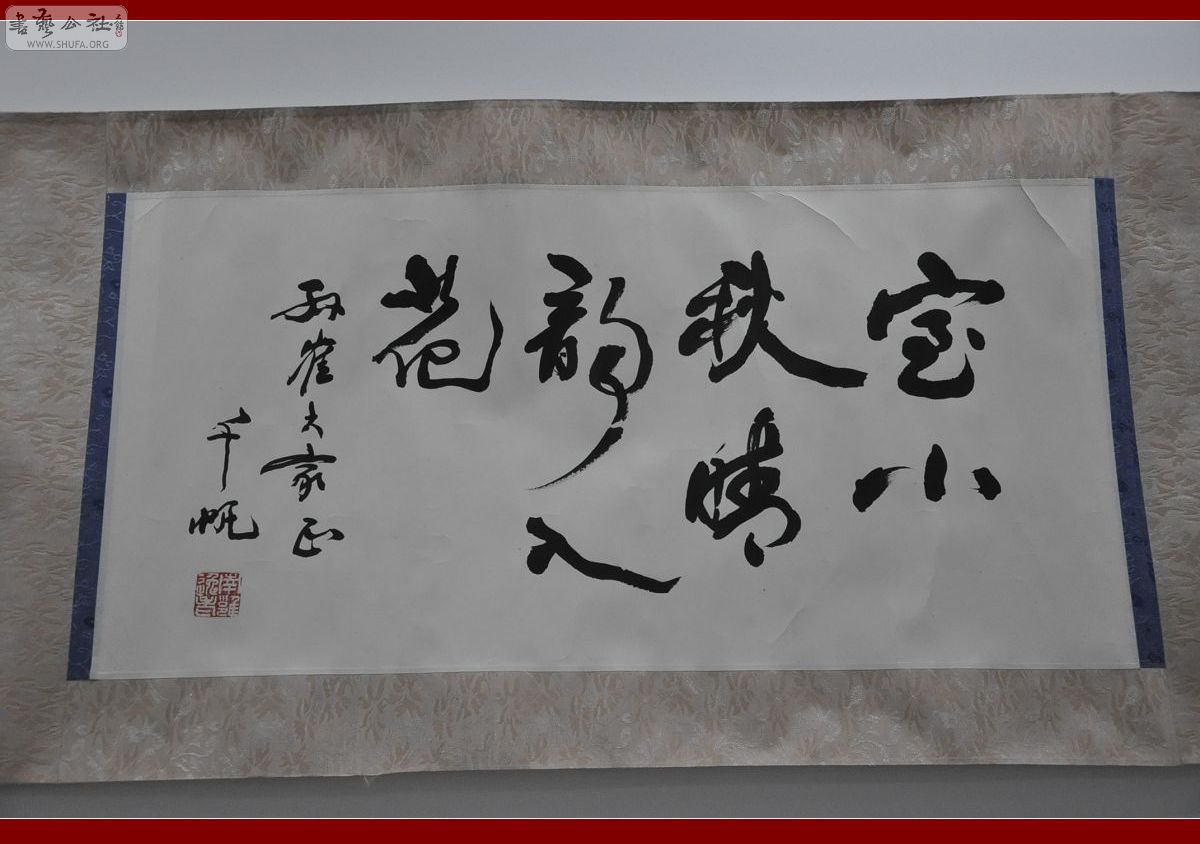 書藝公社
WWW.SHUFA.ORG
室小
秋晴
韻入
花
崔大家正
千帆
南雍